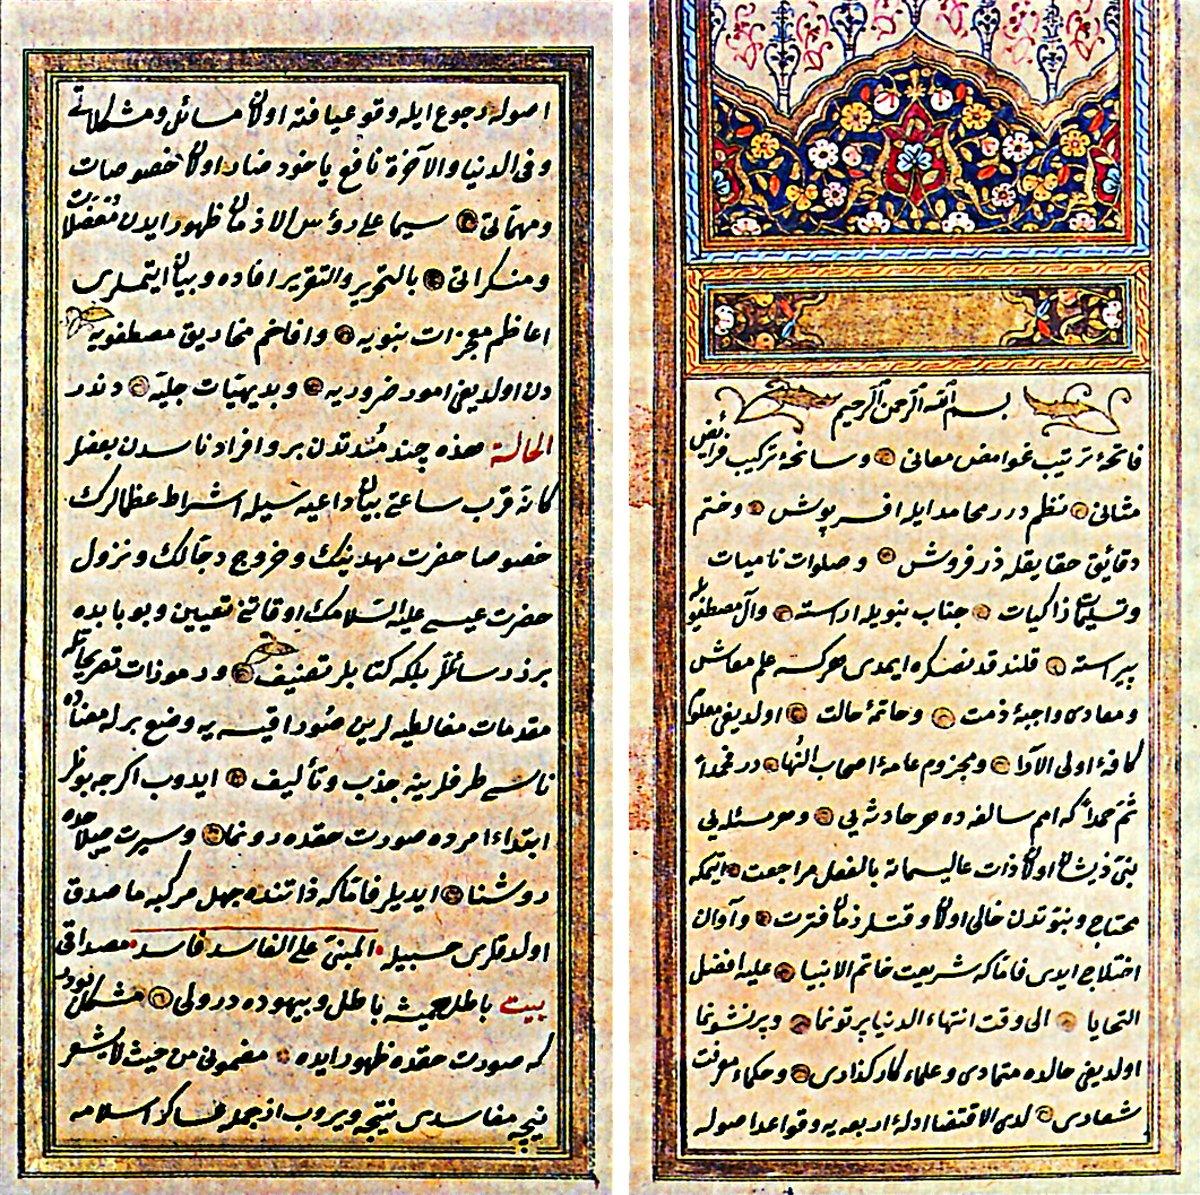 بسم الله الرحمن الرحيم
فاتحهٔ ترتیب غوامض معانی و سانحهٔ ترکیب فرائض
مثانی نظم درر محامد ایله افریوش و ختم
دقایق حقایقله ذر فروش و صلوات نامیات
و تسلیمات ذاکیات جناب نبویله اراسته و آل مصطفویله
پیراسته قلند قدنصکره ایمدی هرکسه علم معاش
و معادی واجبهٔ ذمت و خاتمهٔ حالت اولدیغی معلوم
کافهٔ اولی الآراء و مجزوم عامهٔ اصحاب النها در فحمداً
ثم حمداً که امم سالفه ده هر حادثه یی و هر مسئله یی
نبی ذیشان اولان ذات عالیسمانه بالفعل مراجعت ایتمکه
محتاج و نبوتدن خالی اولان وقتلر زمان فترت و آوان
اختلاج ایدی فاما که شریعت خاتم الانبیا علیه افضل
التحایا الی وقت انتهاء الدنیا پرتونما و پرنشونما
اولدیغی حالده متمادی و علماء کارکذاری و حکماء معرفت
شعاری لدی الاقتضا ادلهٔ اربعه یه و قواعد اصوله
اصوله رجوع ایله وقوعیافته اولان مسائل و مشکلاتی
و فی الدنیا والآخرة نافع یاخود ضار اولان خصوصات
و مهماتی سیما علی رؤس الازمان ظهور ایدن معضلات
و منکراتی بالتحریر والتقریر افاده و بیان ایتملری
اعاظم معجزات نبویه و افاخم مخاریق مصطفویه
دن اولدیغی امور ضروریه و بدیهیات جلیه دندر
الحالة هذه چند مدتدن برو افراد ناسدن بعضلر
کانه قرب ساعتی بیان داعیه سیله اشراط عظامک
خصوصا حضرت مهدینک و خروج دجالک و نزول
حضرت عیسی علیه السلامک اوقاتنی تعیین و بو بابده
برر رسائللر بلکه کتابلر تصنیف و رموزات تصریحاتله
مقدمات مغالطیه لرین صور اقیسه یه وضع برله معتاده
ناسی طرفلرینه جذب و تألیف ایدوب اکرچه بونلر
ابتداء امرده صورت حقده رونما و سیرت صلاحده
روشنا ایدیلر فاما که ذاتنده جهل مرکبه ماصدق
اولدقلری حسبیله المبنی علی الفاسد فاسد مصداقی
بیت باطل همیشه باطل و بیهوده در ولی مشکل اولور
که صورت حقده ظهور ایده مضمونی من حیث لا یشعر
نیجه مفاسدی نتیجه ویروب از جمله عساکر اسلامه